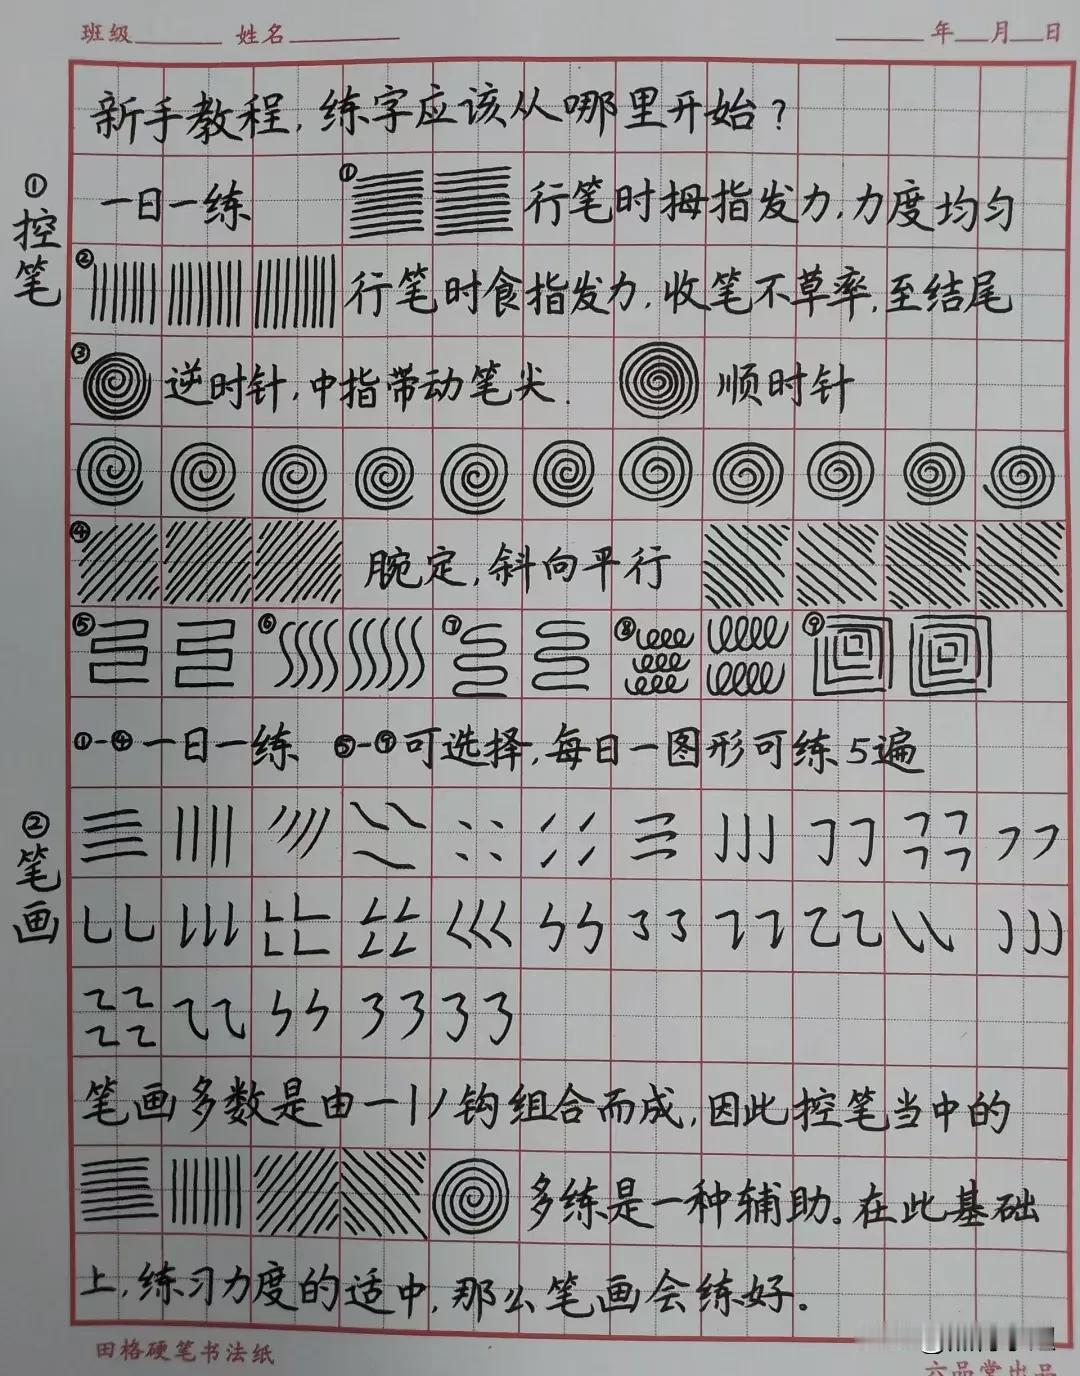 班级 姓名 年 月 日
新手教程,练字应该从哪里开始?
①控笔
一日一练 ① 行笔时拇指发力,力度均匀
② 行笔时食指发力,收笔不草率,至结尾
③ 逆时针,中指带动笔尖. 顺时针
④ 腕定,斜向平行
⑤ ⑥ ⑦ ⑧ ⑨
①-④一日一练 ⑤-⑨可选择,每日一图形可练5遍
②笔画
笔画多数是由一丨丿钩组合而成,因此控笔当中的
多练是一种辅助。在此基础
上,练习力度的适中,那么笔画会练好。
田格硬笔书法纸
六品堂出品